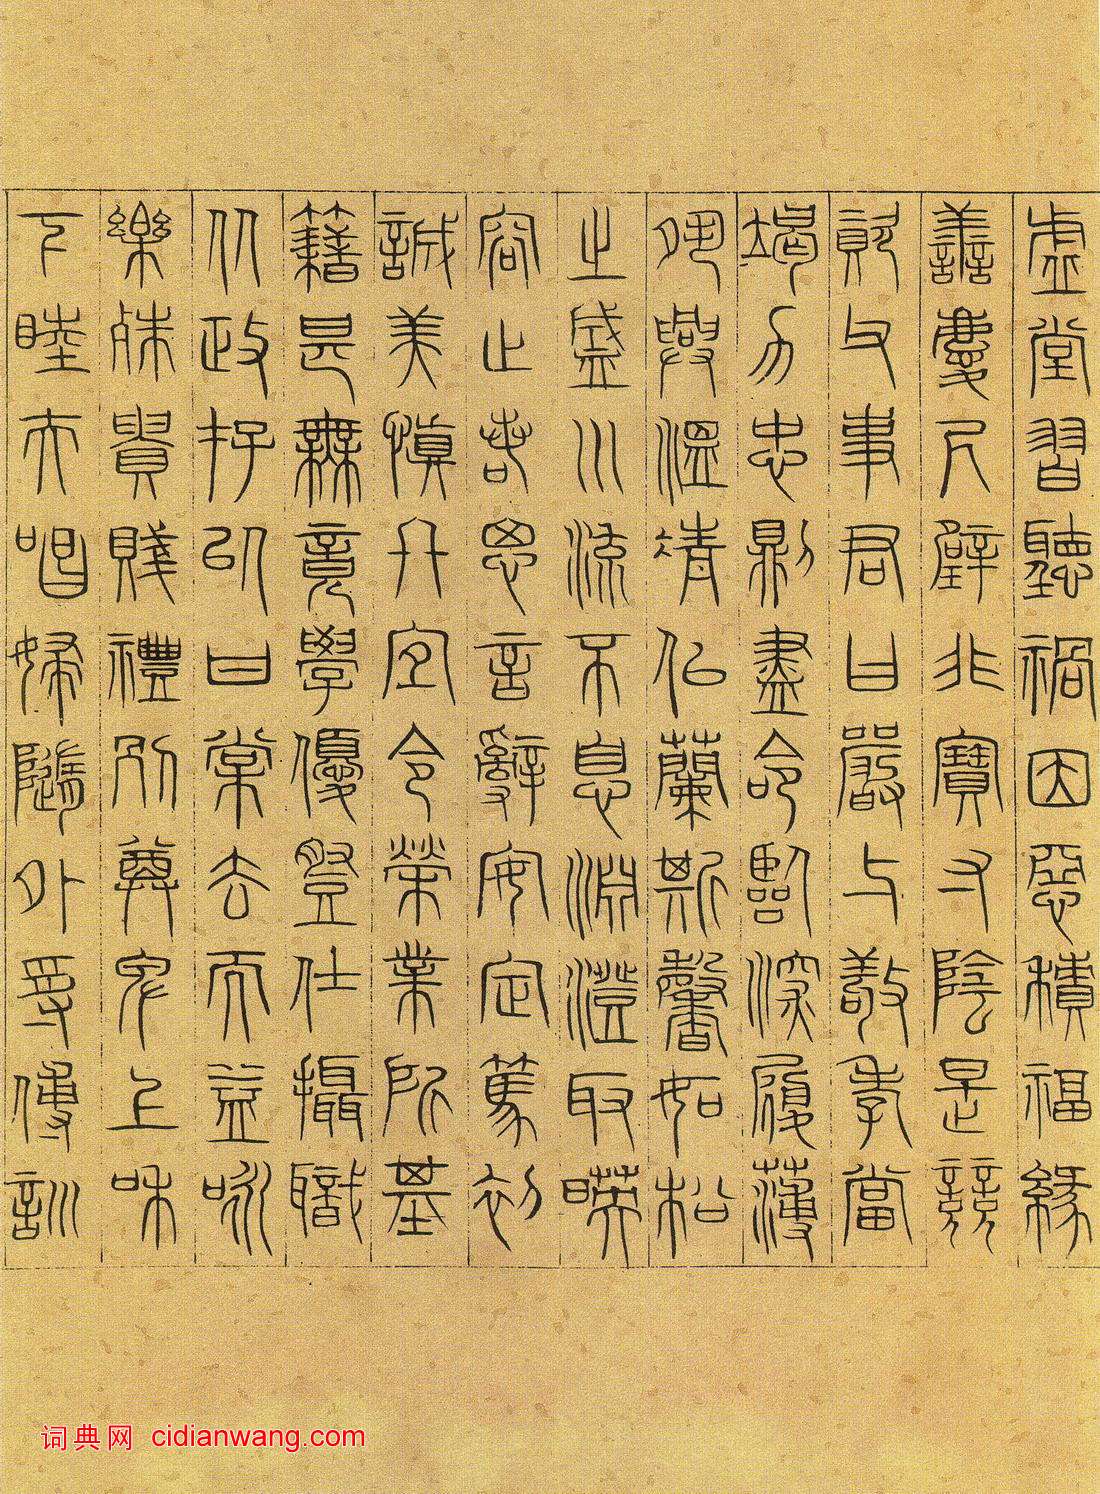 虛堂習聽禍因惡積福緣
善慶尺璧非寶寸陰是競
資父事君曰嚴與敬孝當
竭力忠則盡命臨深履薄
夙興溫凊似蘭斯馨如松
之盛川流不息淵澄取暎
容止若思言辭安定篤初
誠美慎終宜令榮業所基
籍甚無竟學優登仕攝職
從政存以甘棠去而益咏
樂殊貴賤禮別尊卑上和
下睦夫唱婦隨外受傅訓
词典网 cidianwang.com